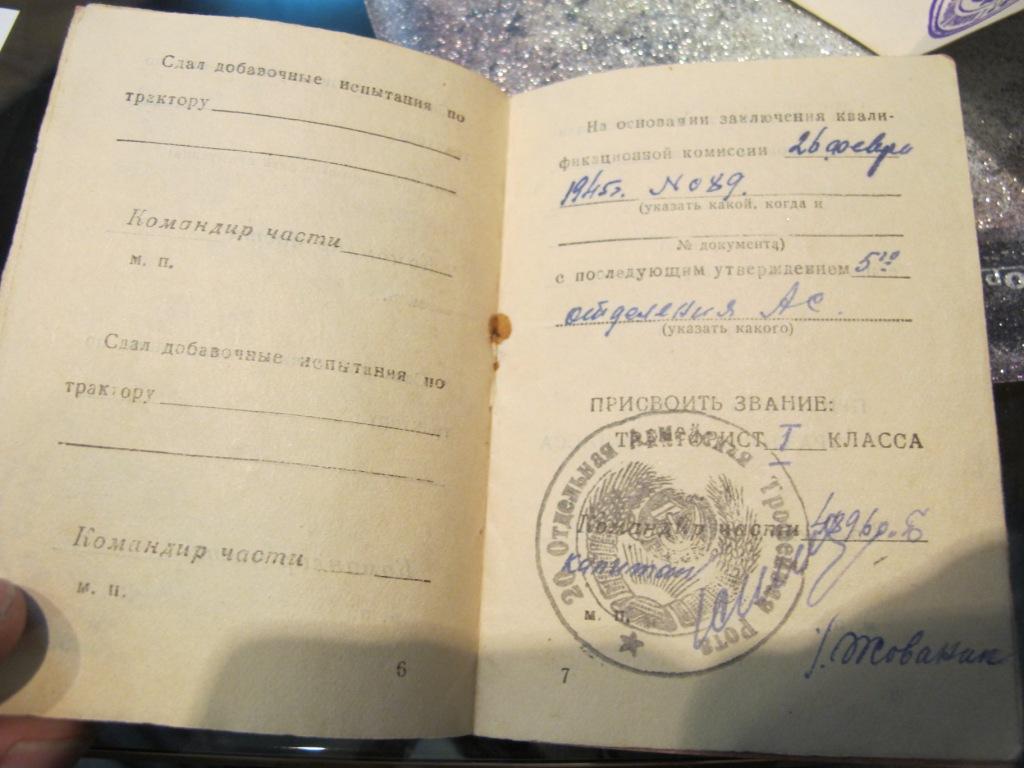 Сдал добавочные испытания по
трактору
Командир части
м. п.
Сдал добавочные испытания по
трактору
Командир части
м. п.
6
На основании заключения квали-
фикационной комиссии 26 февр
1945г. № 089.
(указать какой, когда и
№ документа)
с последующим утверждением 5го
отделения АС.
(указать какого)
ПРИСВОИТЬ ЗВАНИЕ:
ТРАКТОРИСТ I КЛАССА
Командир части
капитан
м. п.
20 Отдельная Армейская Трофейная Рота
7